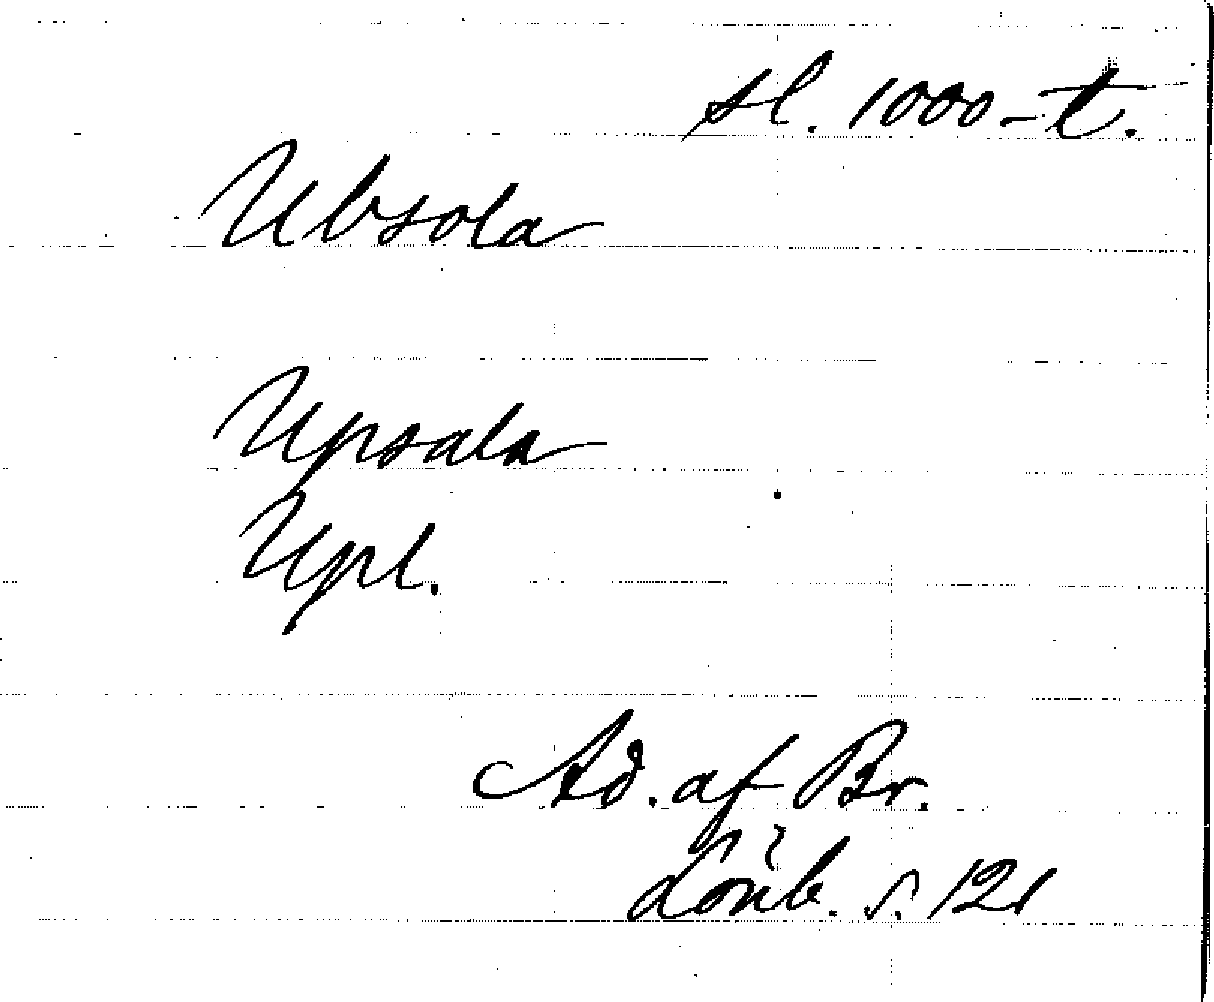 sl. 1000-t.
Ubsola
Upsala
Upl.
Ad. af Br.
s. 121